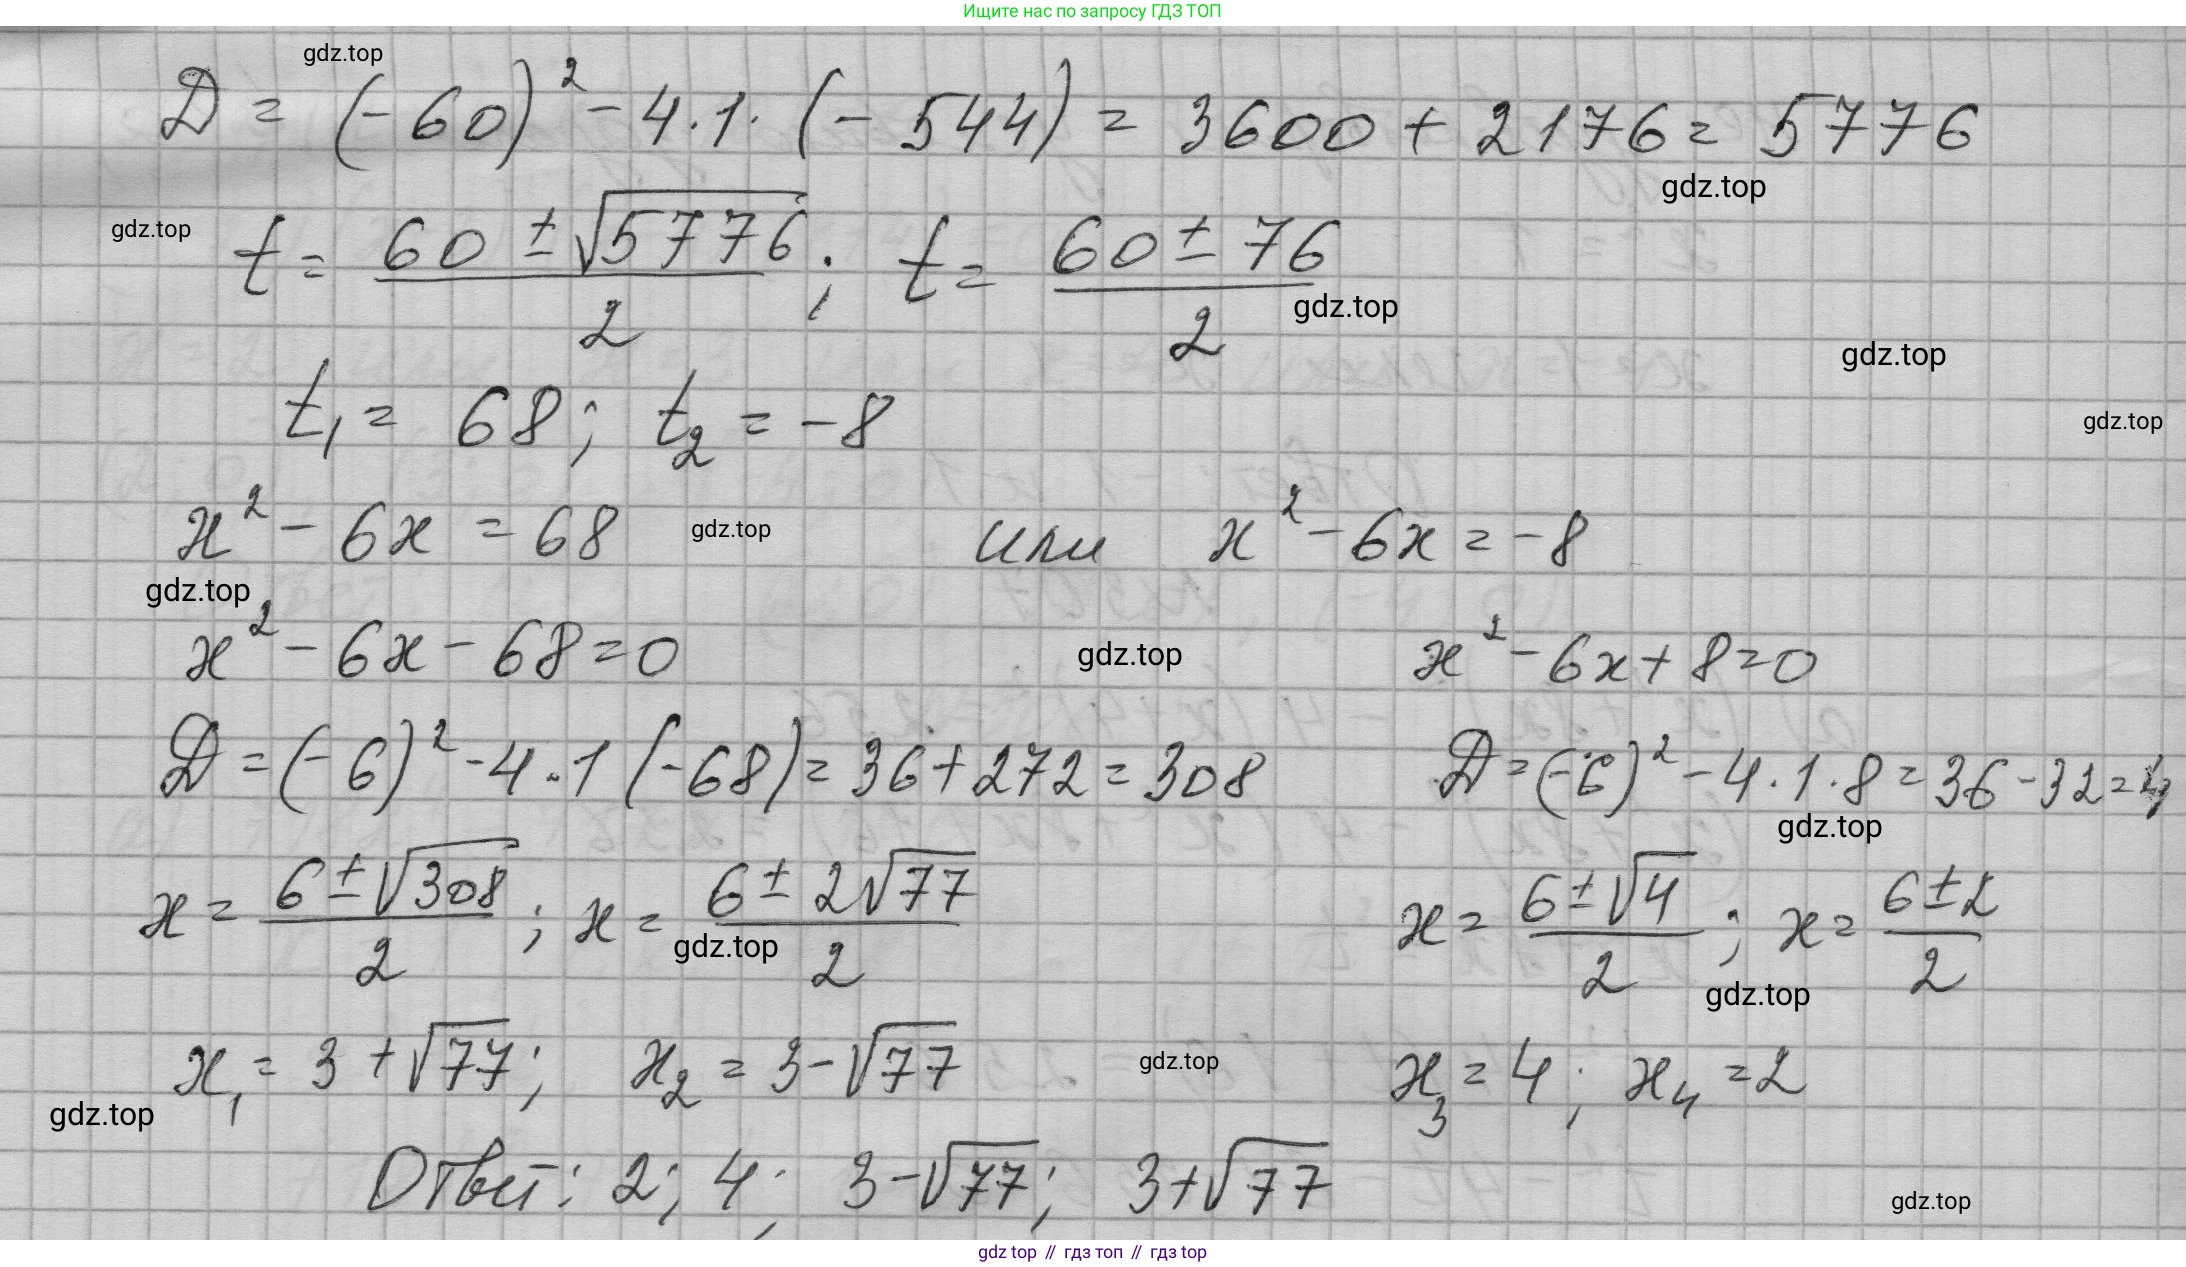 Ищите нас по запросу ГДЗ ТОП
gdz.top
D = (-60)² - 4·1·(-544) = 3600 + 2176 = 5776
gdz.top
gdz.top
t = (60 ± √5776)/2 ; t = (60 ± 76)/2
gdz.top
gdz.top
t₁ = 68; t₂ = -8
gdz.top
x² - 6x = 68 gdz.top или x² - 6x = -8
gdz.top
x² - 6x - 68 = 0 gdz.top x² - 6x + 8 = 0
D = (-6)² - 4·1 (-68) = 36 + 272 = 308 D = (-6)² - 4·1·8 = 36 - 32 = 4
gdz.top
x = (6 ± √308)/2 ; x = (6 ± 2√77)/2 x = (6 ± √4)/2 ; x = (6 ± 2)/2
gdz.top gdz.top
x₁ = 3 + √77; x₂ = 3 - √77 gdz.top x₃ = 4; x₄ = 2
gdz.top
Ответ: 2; 4; 3 - √77; 3 + √77
gdz.top
gdz top // гдз топ // gdz top